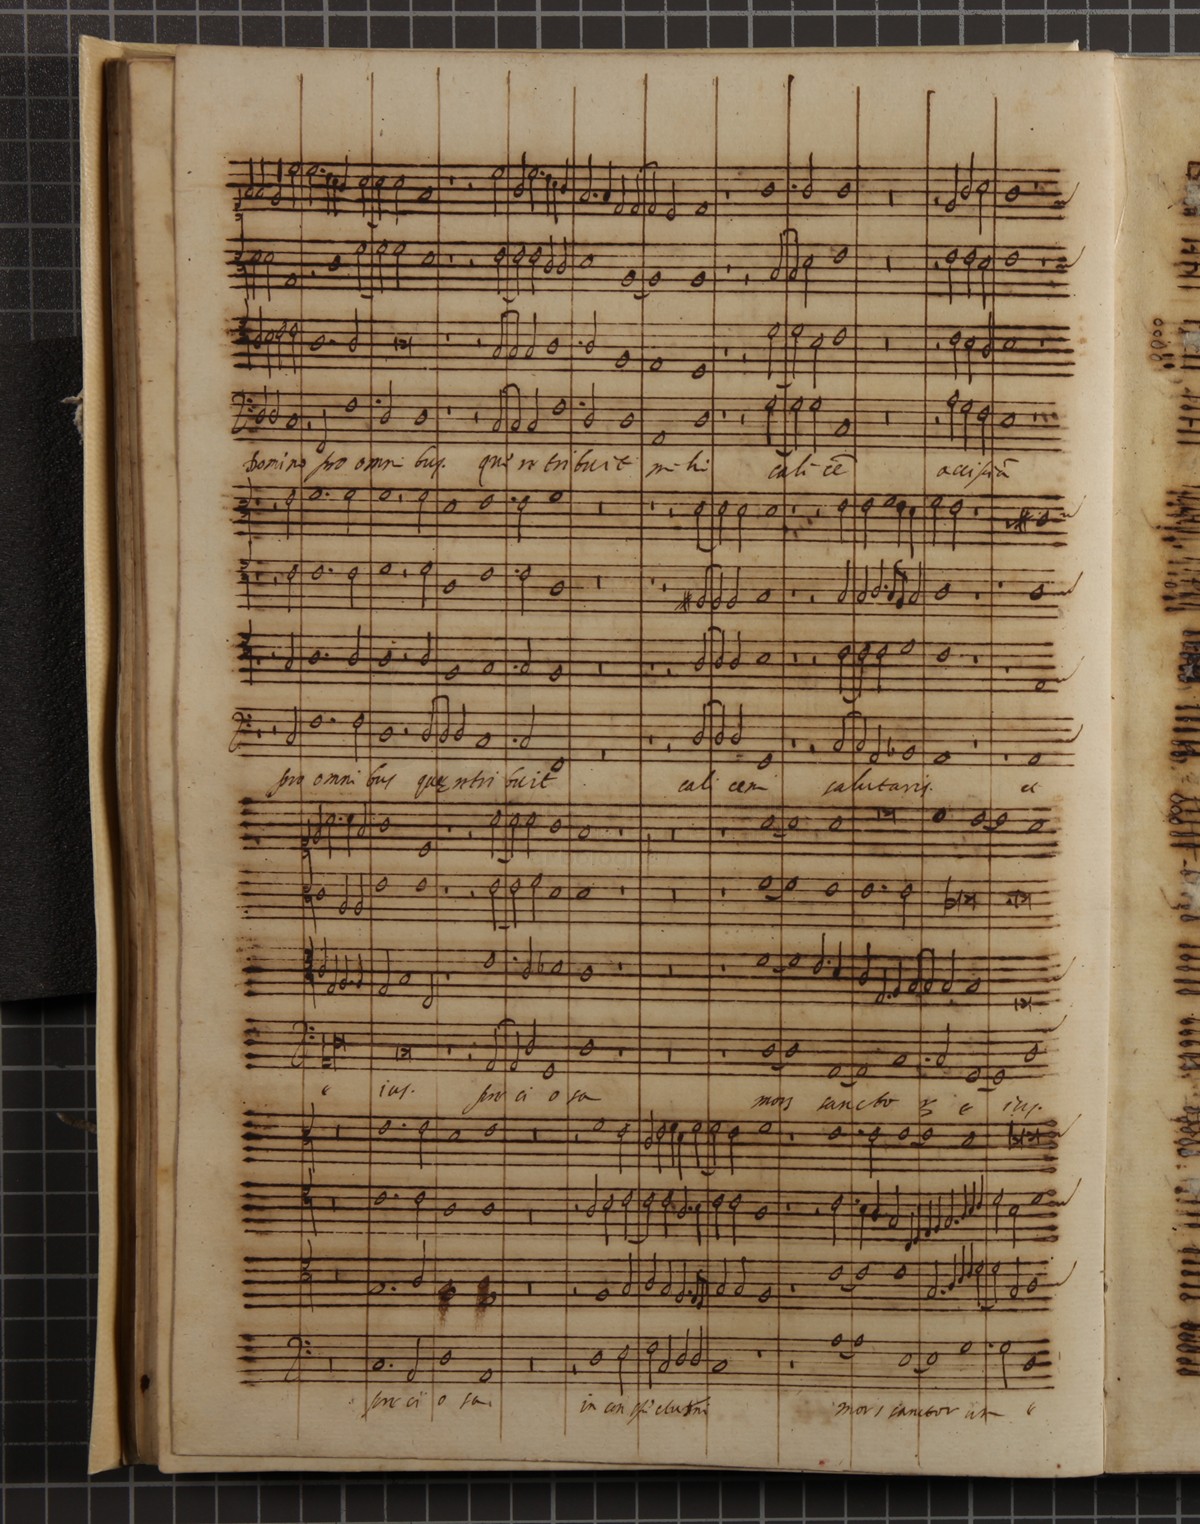 Domino pro omni bus. que re tribuit mi hi cali cē accipiā
pro omni bus que retri buit cali cem salutaris. et
e ius. pre ci o sa mors sancto ꝝ e ius.
pre ci o sa in con spectu mors sanctor um e